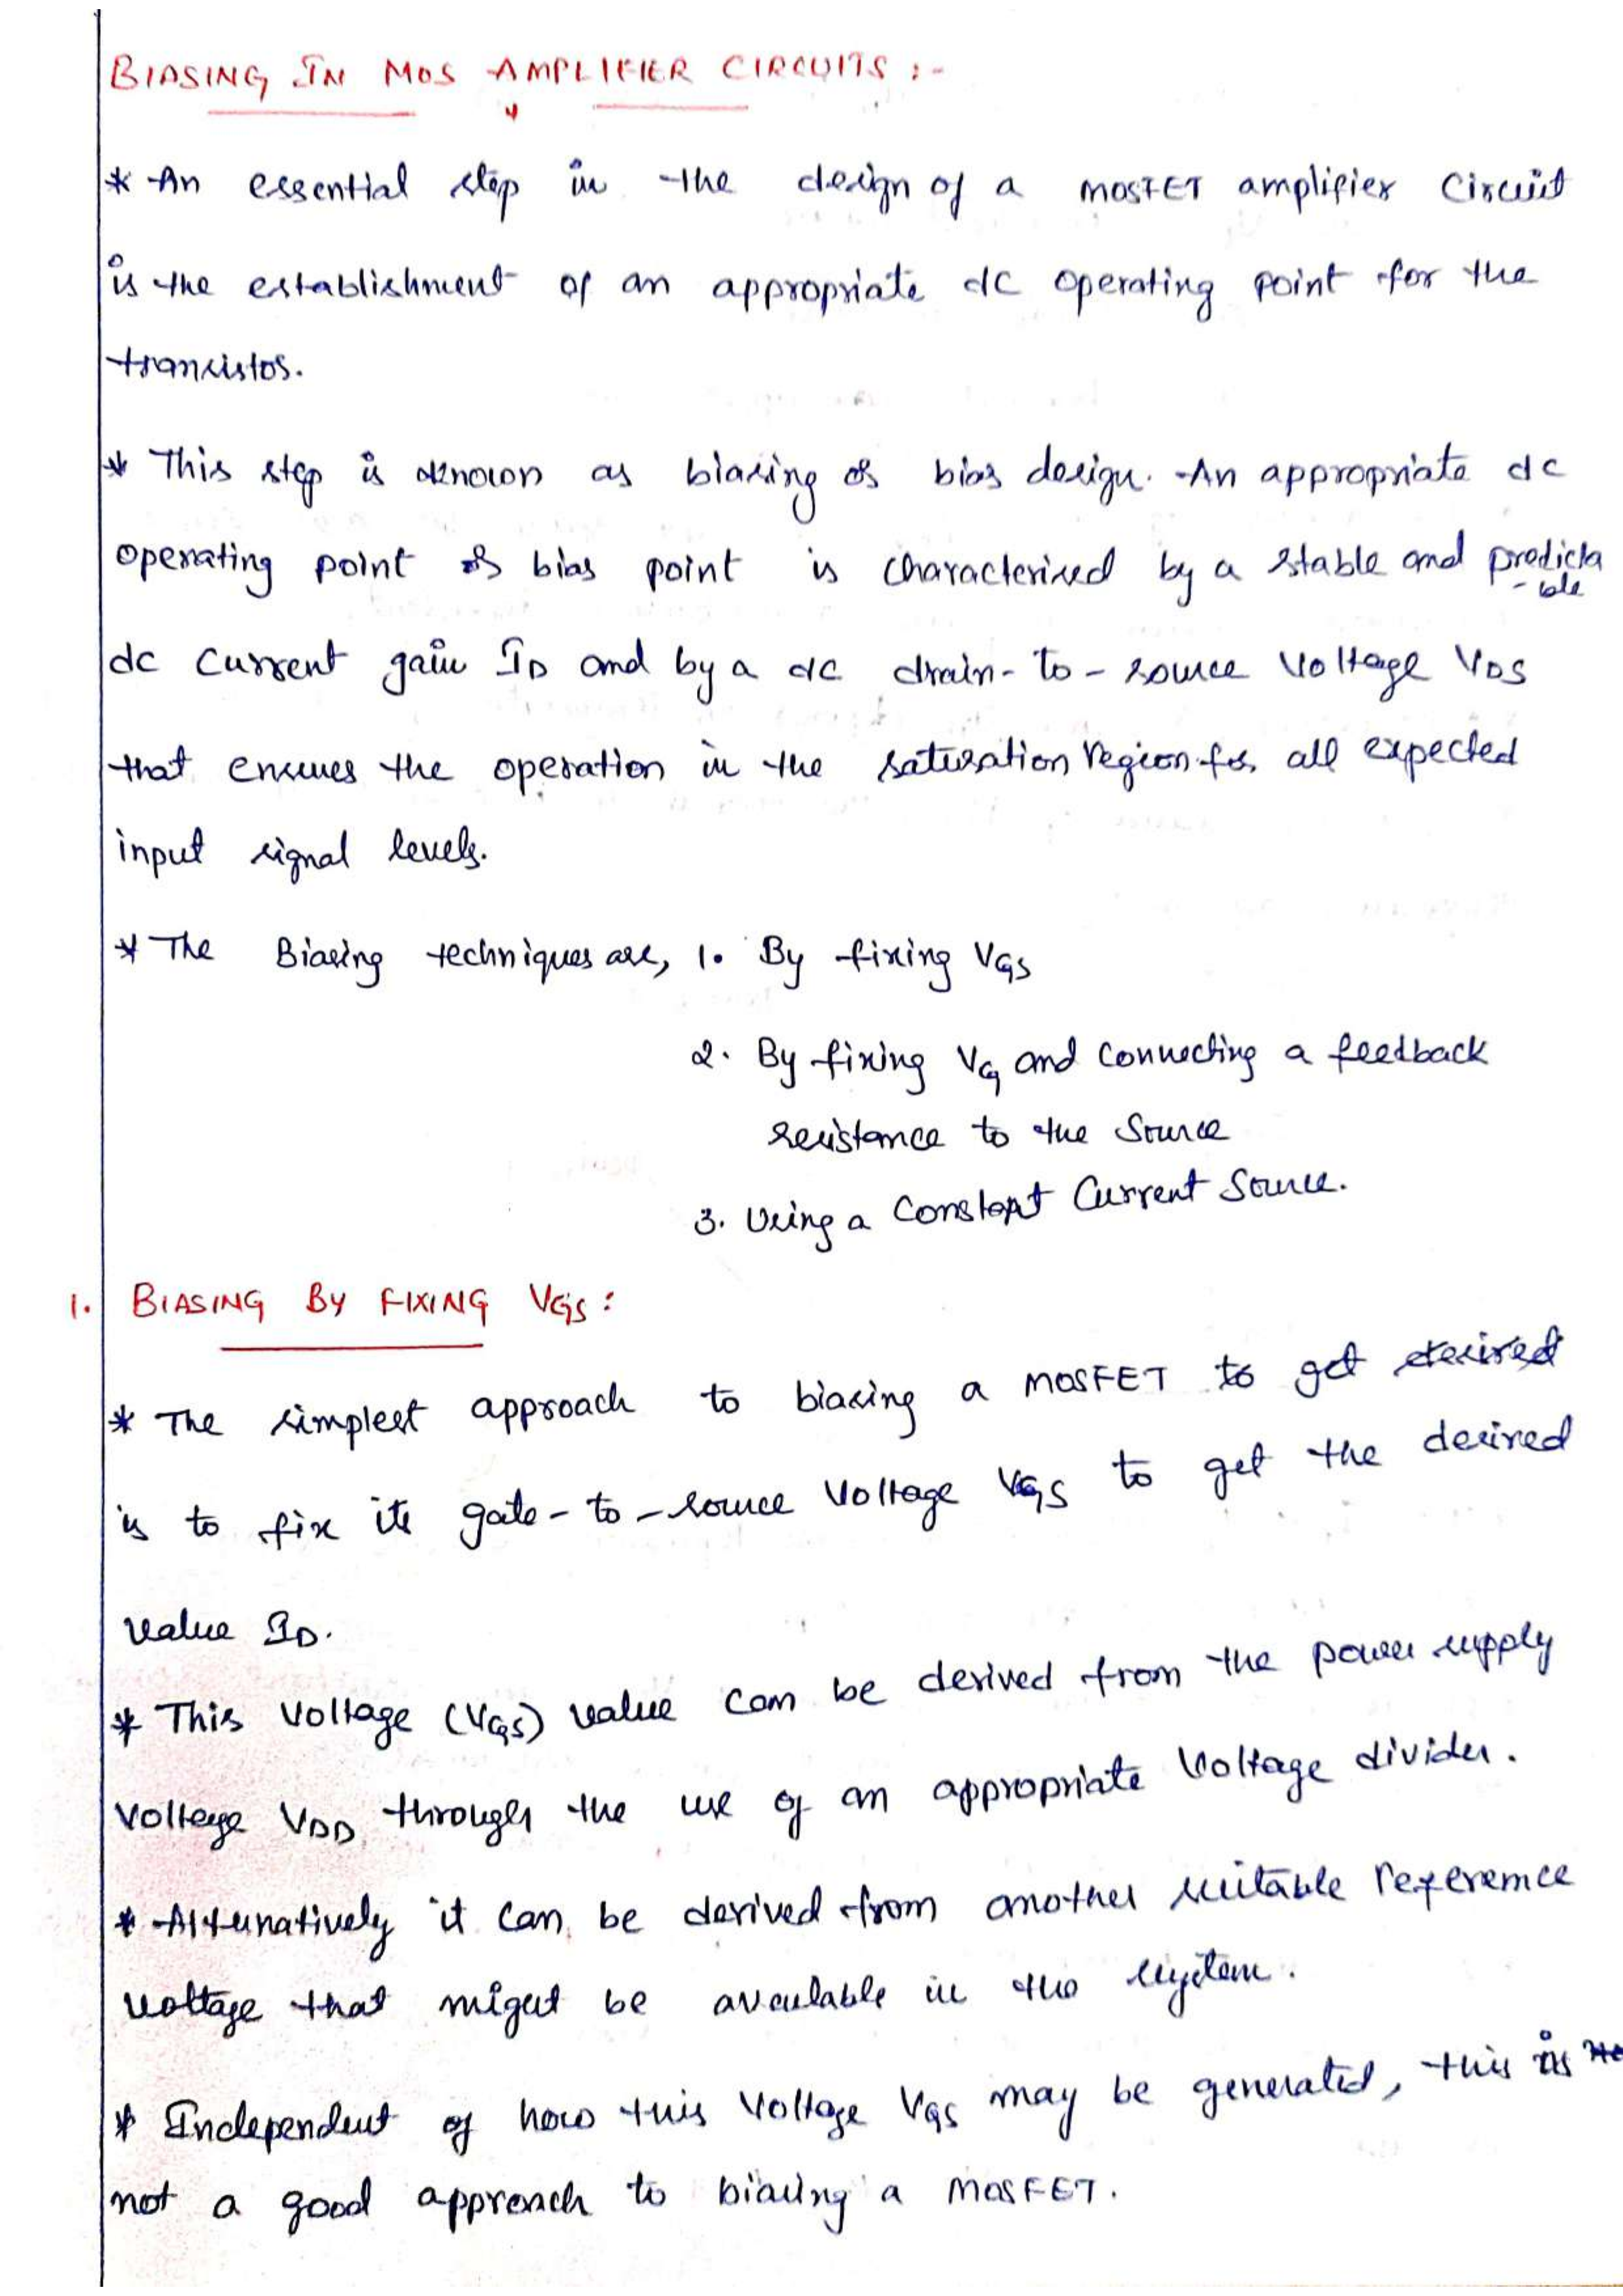 BIASING IN MOS AMPLIFIER CIRCUITS :-
* An essential step in the design of a MOSFET amplifier Circuit
is the establishment of an appropriate dc operating point for the
transistor.
* This step is known as biasing or bias design. An appropriate dc
operating point or bias point is characterised by a stable and predicta
-ble
dc Current gain ID and by a dc drain-to-source Voltage VDS
that ensures the operation in the saturation region for all expected
input signal levels.
* The Biasing techniques are, 1. By fixing VGS
2. By fixing VG and Connecting a feedback
resistance to the Source
3. Using a Constant Current Source.
1. BIASING BY FIXING VGS :
* The simplest approach to biasing a MOSFET to get desired
is to fix its gate-to-source Voltage VGS to get the desired
value ID.
* This Voltage (VGS) value can be derived from the power supply
Voltage VDD through the use of an appropriate Voltage divider.
* Alternatively it can be derived from another suitable reference
voltage that might be available in the system.
* Independent of how this Voltage VGS may be generated, this is
not a good approach to biasing a MOSFET.